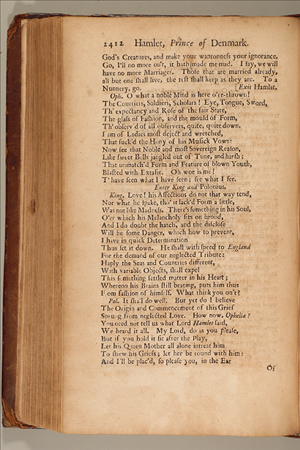 2412 Hamlet, Prince of Denmark.
God's Creatures, and make your wantonness your ignorance.
Go, I'll no more on't, it hath made me mad. I say, we will
have no more Marriages. Those that are married already,
all but one shall live, the rest shall keep as they are. To a
Nunnery, go. [Exit Hamlet.
Oph. O what a noble Mind is here o'er-thrown!
The Courtiers, Soldiers, Scholars! Eye, Tongue, Sword,
Th' expectancy and Rose of the fair State,
The glass of Fashion, and the mould of Form,
Th' observ'd of all observers, quite, quite down.
I am of Ladies most deject and wretched,
That suck'd the Hony of his Musick Vows:
Now see that Noble and most Sovereign Reason,
Like sweet Bells jangled out of Tune, and harsh;
That unmatch'd Form and Feature of blown Youth,
Blasted with Extasie. Oh woe is me!
T' have seen what I have seen; see what I see.
Enter King and Polonius.
King. Love! his Affections do not that way tend,
Nor what he spake, tho' it lack'd Form a little,
Was not like Madness. There's something in his Soul,
O'er which his Melancholy sits on brood,
And I do doubt the hatch, and the disclose
Will be some Danger, which how to prevent,
I have in quick Determination
Thus set it down. He shall with speed to England
For the demand of our neglected Tribute:
Haply the Seas and Countries different,
With variable Objects, shall expel
This something settled matter in his Heart;
Whereon his Brains still beating, puts him thus
From fashion of himself. What think you on't?
Pol. It shall do well. But yet do I believe
The Origin and Commencement of this Grief
Sprung from neglected Love. How now, Ophelia?
You need not tell us what Lord Hamlet said,
We heard it all. My Lord, do as you please,
But if you hold it fit after the Play,
Let his Queen Mother all alone intreat him
To shew his Griefs; let her be round with him:
And I'll be plac'd, so please you, in the Ear
Of